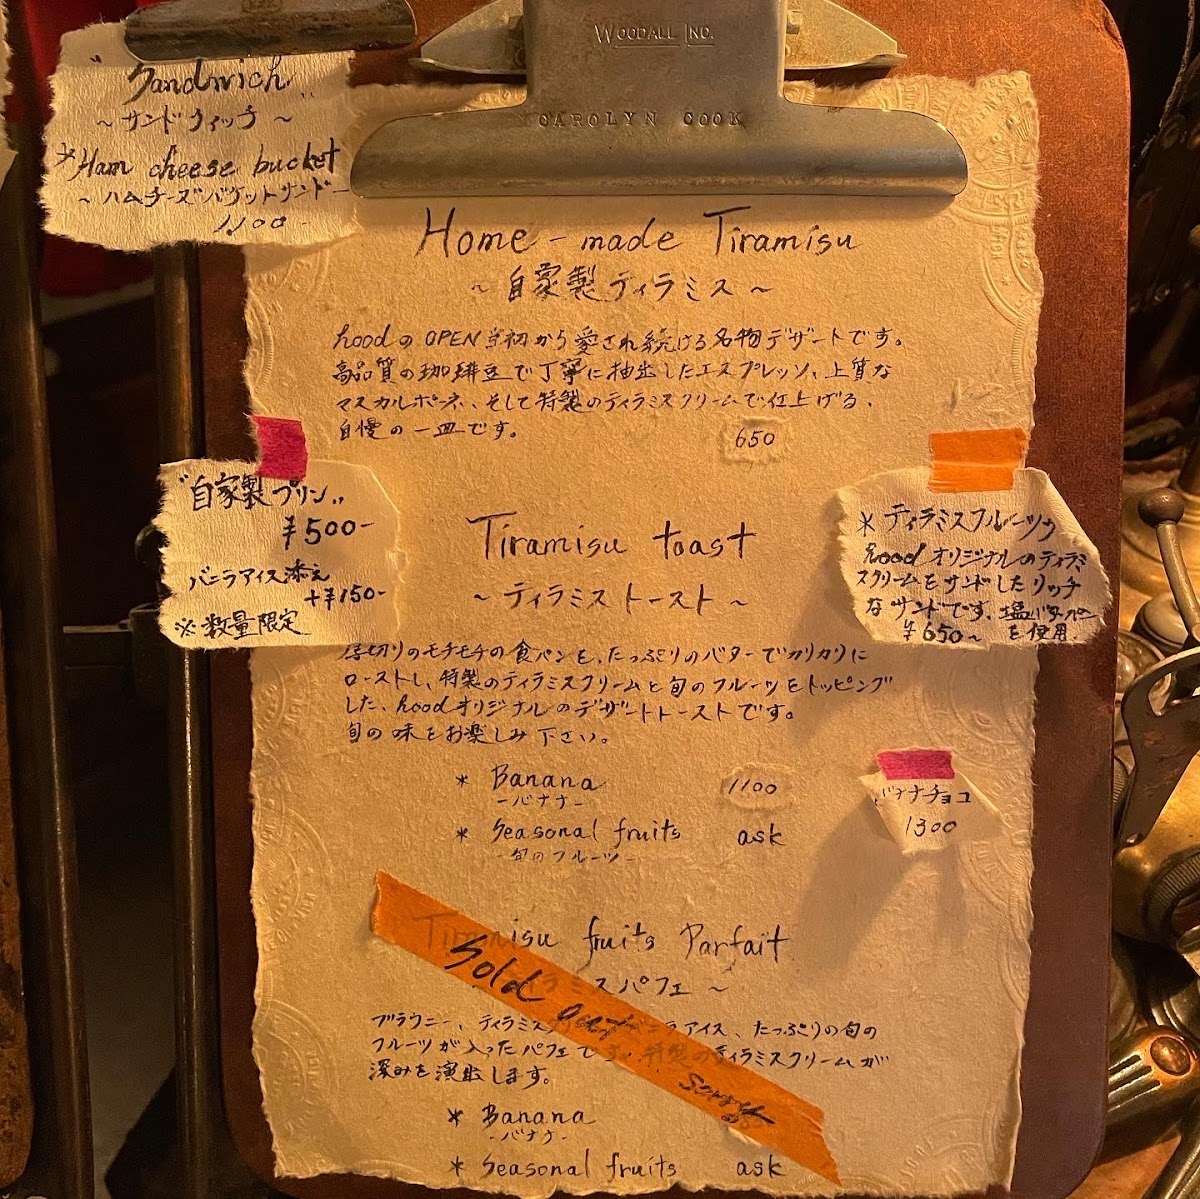 WOODALL INC.
CAROLYN COOK
"Sandwich"
～サンドウィッチ～
*Ham cheese bucket
～ハムチーズバケットサンド～
1,100-
Home-made Tiramisu
～自家製ティラミス～
hoodのOPEN当初から愛され続ける名物デザートです。
高品質の珈琲豆で丁寧に抽出したエスプレッソ、上質な
マスカルポーネ、そして特製のティラミスクリームで仕上げる、
自慢の一皿です。
650
"自家製プリン"
¥500-
バニラアイス添え
+¥150-
※数量限定
Tiramisu toast
～ティラミストースト～
厚切りのモチモチの食パンを、たっぷりのバターでカリカリに
ローストし、特製のティラミスクリームと旬のフルーツをトッピング
した、hoodオリジナルのデザートトーストです。
旬の味をお楽しみ下さい。
*ティラミスフルーツサンド
hoodオリジナルのティラミ
スクリームをサンドしたリッチ
なサンドです。塩バターパン
¥650～ を使用
* Banana 1100
-バナナ-
* Seasonal fruits ask
-旬のフルーツ-
バナナチョコ
1300
Tiramisu fruits Parfait
ティラミスパフェ～
Sold out
sorry
ブラウニー、ティラミスクリーム、バニラアイス、たっぷりの旬の
フルーツが入ったパフェです。特製のティラミスクリームが
深みを演出します。
* Banana
-バナナ-
* Seasonal fruits ask